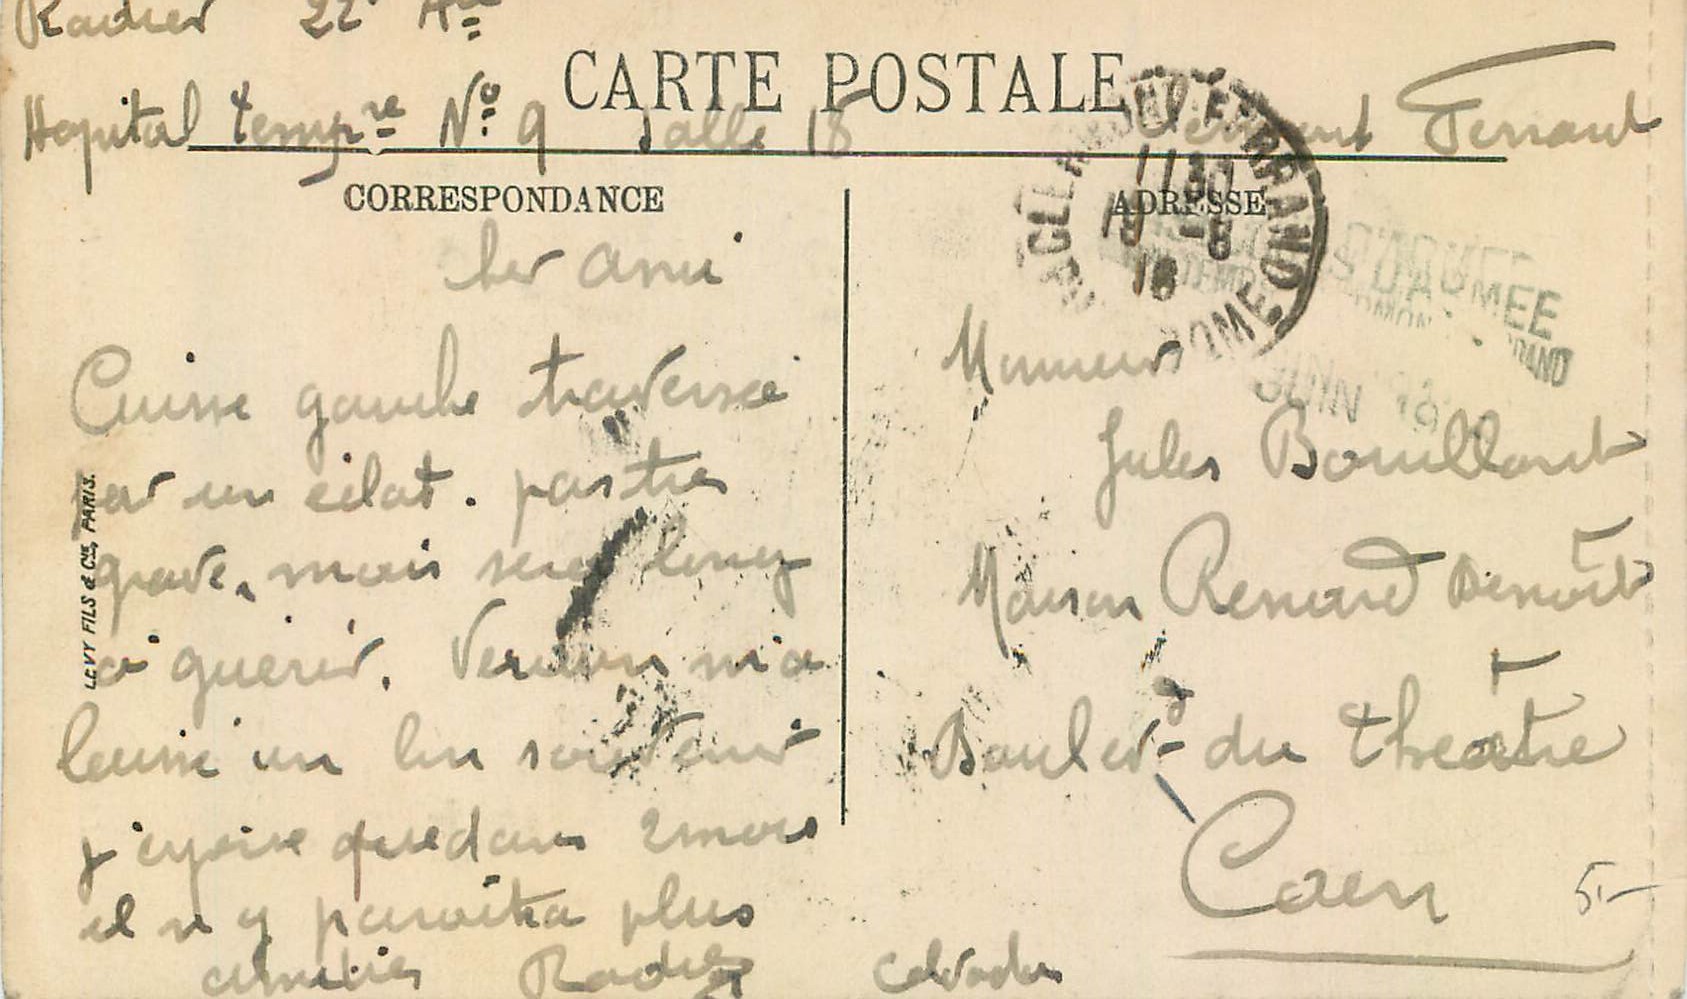 Radier 22e
Hopital tempre No. 9 Salle 18 Clermont Ferrand
CARTE POSTALE
CORRESPONDANCE
ADRESSE
CLERMONT-FERRAND
11 30
9 -6
16
DOME
D'ARMEE
JUIN 19
Cher ami
Cuisse gauche traversée
par un éclat. pas très
grave, mais sera long
à guérir. Verdun m'a
laissé un bon souvenir
j'espère que dans 2 mois
il n'y paroitra plus
amitiés Radier
LEVY FILS & Cie, PARIS.
Monsieur
Jules Bouillant
Maison Renard Benoit
Boulevd du théatre
Caen
Calvados
5,-